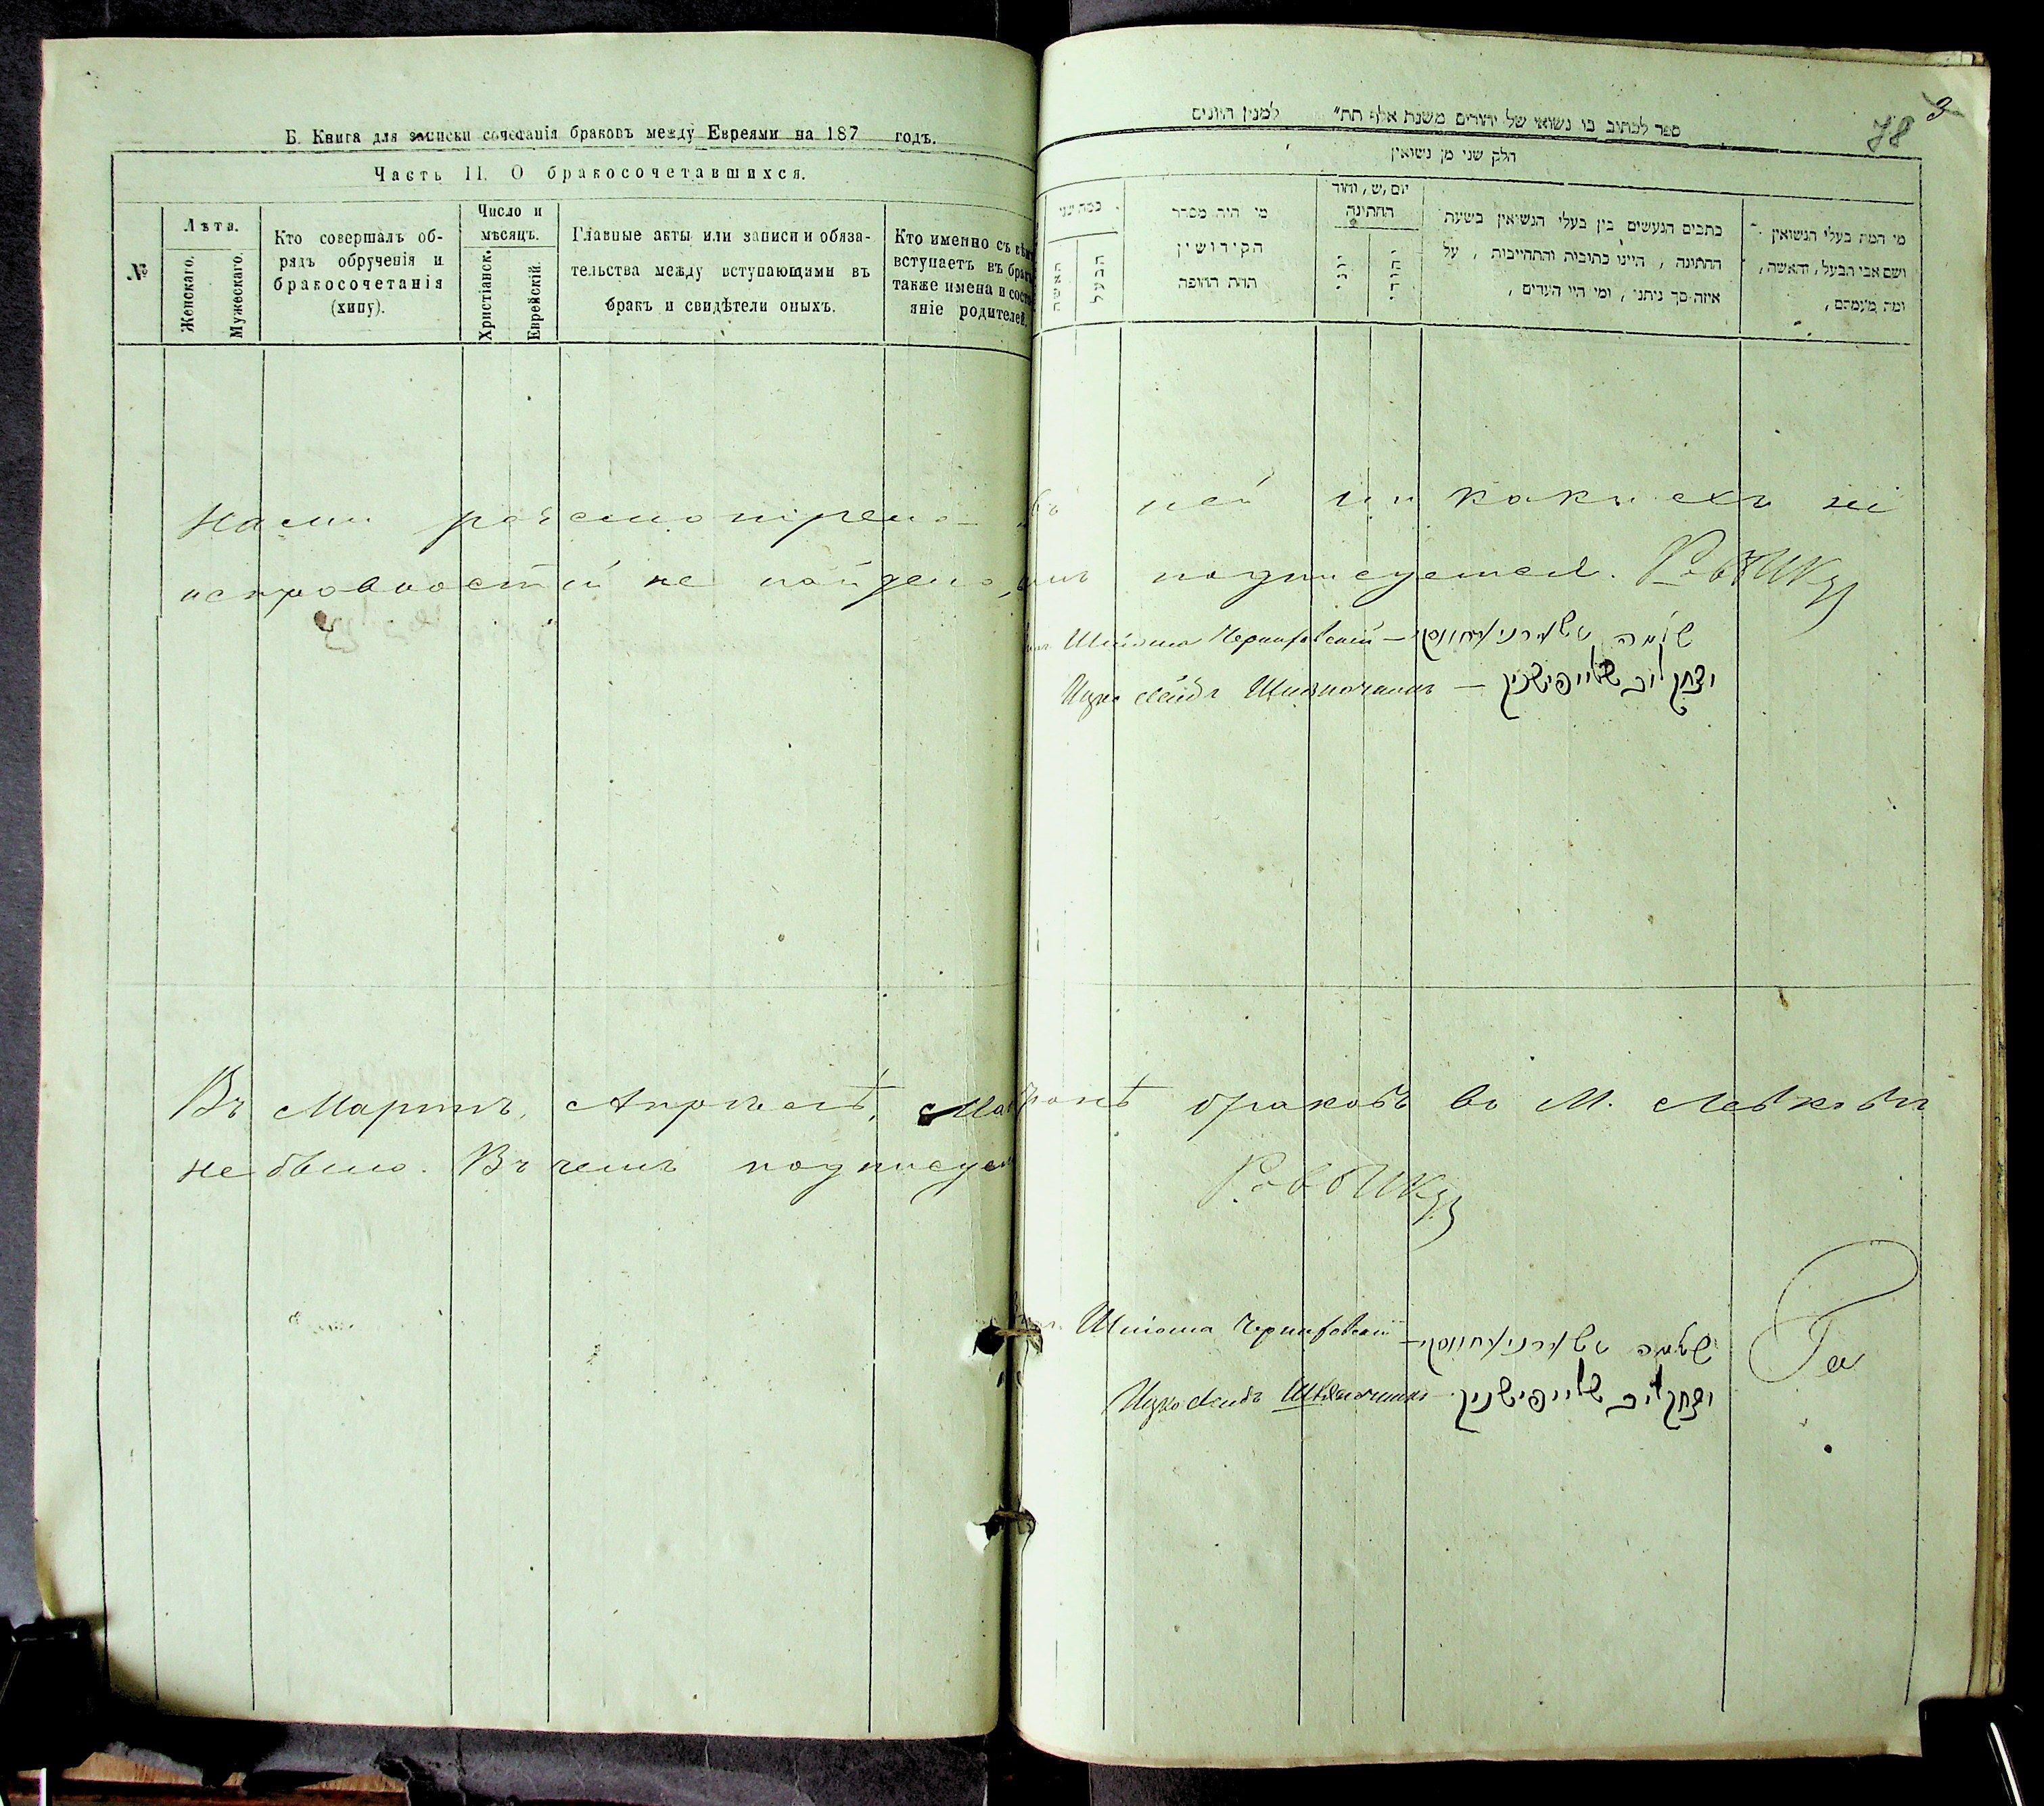 Б. Книга для записки сочетанія браковъ между Евреями на 187 годъ.
Часть II. О бракосочетавшихся.
№
Лѣта.
Женскаго.
Мужескаго.
Кто совершалъ об-
рядъ обрученія и
бракосочетанія
(хипу).
Число и
мѣсяцъ.
Христіанск.
Еврейскій.
Главные акты или записи и обяза-
тельства между вступающими въ
бракъ и свидѣтели оныхъ.
Кто именно съ кѣмъ
вступаетъ въ бракъ
также имена и состо-
яніе родителей.
78
3
ספר לכתוב בו נשואי של יהודים משנת אלף תת״ למנין היונים
חלק שני מן נישואין
כמה שני
האשה
הבעל
מי היה מסדר
הקידושין
תחת החופה
החתונה
יוני
יהודי
כתבים הנעשים בין בעלי הנשואין בשעת
החתונה, היינו כתובות והתחייבות, על
איזה סך ניתני, ומי היו העדים,
מי המה בעלי הנשואין
ושם אבי הבעל, והאשה,
ומה מעמדם,
Нами разсмотрено въ ней ни какихъ не
исправностей не найдено, подписуемся.
Шліома Черниховскій — שלמה טשערניחווסקי
Ицко Лейбъ — יצחק ליב
Въ Мартѣ, Апрѣлѣ, браковъ въ М. Левковѣ
не было. Въ чемъ подписуем
Шліома Черниховскій — שלמה טשערניחווסקי
Ицко Лейбъ — יצחק ליב